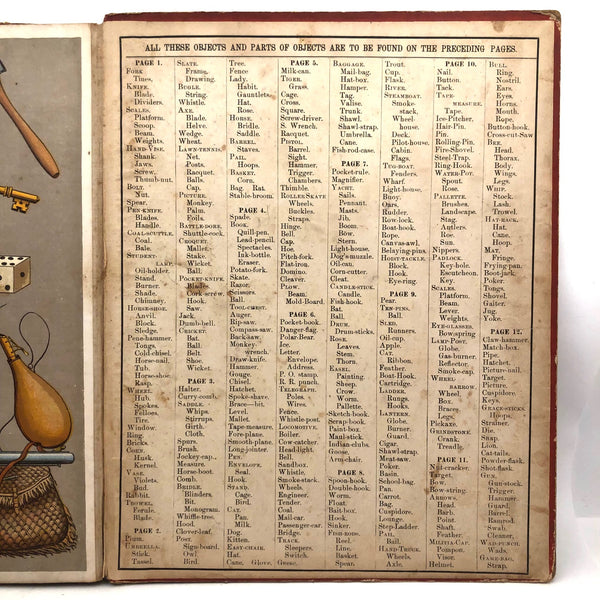 ALL THESE OBJECTS AND PARTS OF OBJECTS ARE TO BE FOUND ON THE PRECEDING PAGES.
PAGE 1.
FORK
Tines.
KNIFE.
Blade.
Dividers.
SCALES.
Platform.
Scoop.
Beam.
Weights.
HAND-VISE.
Shank.
Jaws.
Screw.
Thumb-nut.
BOLT.
Nut.
Spear.
PEN-KNIFE.
Blades.
Handle.
COAL-SCUTTLE.
Coal.
Bale.
STUDENT-
LAMP.
Oil-holder.
Stand.
Burner.
Shade.
Chimney.
HORSE-SHOE.
Anvil.
Block.
Sledge.
Pene-hammer.
Tongs.
Cold-chisel.
Horse-nail.
Horse-shoe.
Rasp.
WHEEL.
Hub.
Spokes.
Felloes.
Tire.
Window.
Ring.
Bricks.
CORN.
Husk.
Kernel.
VASE.
Violets.
Bud.
Rabbit.
TROWEL.
Ferule.
Blade.
PAGE 2.
Plum.
UMBRELLA.
Stick.
Tassel.
SLATE.
Frame.
Drawing.
BUGLE.
String.
Whistle.
AXE.
Blade.
Helve.
Wedge.
LAWN-TENNIS.
Net.
Posts.
Racquet.
Balls.
PICTURE.
Monkey.
Palm.
Foils.
BATTLE-DORE.
Shuttle-cock.
CROQUET.
Mallet.
Stake.
Wicket.
Ball.
POCKET-KNIFE.
Blades.
Cork-screw.
Hat.
Jack.
Dumb-bell.
CRICKET.
Bat.
Ball.
Belt.
Shoe.
Wicket.
PAGE 3.
Halter.
Curry-comb.
SADDLE.
Whips.
Stirrups.
Girth.
Cloth.
Spurs.
Brush.
Jockey-cap.
Measure.
Horse-boot.
Comb.
BRIDLE.
Blinders.
Bit.
Monogram.
Whiffle-tree.
Hood.
Clover-leaf.
Post.
Sign-board.
Owl.
Bird.
Tree.
Fence
LADY.
Habit.
Gauntlets.
Hat.
Rose.
HORSE.
Bridle.
Saddle.
BARREL.
Staves.
PAIL.
Hoops.
BASKET.
Corn.
Bag. Rat.
Stable-broom.
PAGE 4.
Spade.
BOOK.
Quill-pen.
Lead-pencil.
Spectacles.
Ink-bottle.
Eraser.
Potato-fork.
Skate.
Razor.
Scissors.
Ball.
TOOL-CHEST.
Auger.
Rip-saw.
Compass-saw.
Back-saw.
Monkey
wrench.
Draw-knife.
Hammer.
Gouge.
Chisel.
Hatchet.
Spoke-shave.
Brace—bit.
Level.
Mallet.
Tape-measure.
Fore-plane.
Smooth-plane.
Long-jointer.
PEN.
ENVELOPE.
Seal.
HAND.
STAND.
Cuff.
CAT.
Pan.
Milk.
DOG.
Kitten.
HAY-CHAIR.
Hat.
Cane, Glove.
PAGE 5.
Milk-can.
TIGER.
Grass.
Cage.
Cross.
Square.
Screw-driver.
S. Wrench.
Racquet.
PISTOL.
Barrel.
Sight.
Hammer.
Trigger.
Chambers.
Thimble.
ROLLER SKATE
Wheels.
Buckles.
Straps.
Hinge.
Bell.
Cap.
Hoe.
Pitch-fork.
Flat-iron.
Domino.
Cleaver.
PLOW.
Beam.
Mold-Board.
PAGE 6.
Pocket-book.
Danger-flag.
Polar-Bear.
Ice.
Letter.
Envelope.
Address.
P. O. stamp.
R. R. punch.
TELEGRAPH.
Poles.
Wires.
Fence.
Whistle-post.
LOCOMOTIVE.
Boiler.
Cow-catcher.
Head-light.
Bell.
Sandbox.
Whistle.
Smoke-stack.
Wheels.
Engineer.
Tender.
Coal.
Mail-car.
Passenger-car.
Bridge.
TRACK.
Sleepers.
Switch.
Geese.
BAGGAGE.
Mail-bag.
Hat-box.
Hamper.
Tag.
Valise.
Trunk.
Shawl-strap.
Umbrella.
Cane.
Fish-rod-case.
PAGE 7.
Pocket-rule.
Magnifier.
YACHT.
Sails.
Pennant.
Masts.
Jib.
Boom.
Bow.
Stern.
Light-house.
Dog's muzzle.
Oil-can.
Corn-cutter.
Cleat.
CANDLE-STICK.
Candle.
Fish-hook.
BAT.
Ball.
DRUM.
Drum-sticks.
ROSE.
Leaves.
Stem.
Thorn.
EASEL.
Painting.
Sheep.
Crow.
Worm.
Pallette.
Sketch-book.
Scrap-book.
Paint-box.
Maul-stick.
Indian-clubs.
Goose.
Arm-chair.
PAGE 8.
Spoon-hook.
Double-hook.
Worm.
Float.
Bait-box.
Hook.
Sinker.
Fish-rods.
Reel.
Line.
Basket.
Bass.
Trout.
Cup.
Flask.
RIVER.
STEAMBOAT.
Smoke-
stack.
Wheel-
house.
Deck.
Pilot-house.
Cabin.
Flags.
TUG-BOAT.
Fenders.
Wharf.
Light-house.
Buoy.
Oars.
Rudder.
Row-lock.
Boat-hook.
Rope.
Canvas-slaw.
Belaying-pins.
HOIST-TACKLE.
Block.
Hook.
Eye-ring.
PAGE 9.
Pear.
TEN-PINS.
Ball.
SLED.
Runners.
Oil-cup.
Apple.
CAT.
Ribbon.
Feather.
Boat-hook.
Cartridge.
LADDER.
Rungs.
Hooks.
LANTERN.
Globe.
Burner.
Guard.
Cigar.
Shawl-strap.
Meat-saw.
Poker.
Basin.
School-bag.
Pan.
Carrot.
Bag.
Cuspidore.
Lounge.
Step-Ladder
PAIL.
Ball.
HAND-TRUCK.
Wheels.
Axle.
Visor.
PAGE 10.
Nail.
Button.
Tack.
TAPE-
MEASURE.
Tape.
Ice-Pitcher.
Hair-Pin.
Pin.
Rolling-Pin.
Fire-Shovel.
Steel-Trap.
Ring-Hook.
WATER-POT.
Spout.
Rose.
PALLETTE.
Brushes.
Landscape.
Stag.
Antlers.
Roe.
Sun.
Nippers.
PADLOCK.
Key-hole.
Escutcheon.
Key.
SCALES.
Platform.
Beam.
Lever.
Weight.
EYE-GLASSES.
Bow-spring
LAMP-POST.
Globe.
Gas-burner.
Reflector.
Smoke-cap.
WHEEL-
BARROW.
Wheel.
Box.
Braces.
Legs.
Pickaxe.
GRINDSTONE.
Crank.
Treadle.
PAGE 11.
Nut-cracker.
Target.
Bow.
Bow-string.
ARROWS.
Head.
Barb.
Point.
Shaft.
Feather.
MILITIA-CAP.
Pompon.
Visor.
Helmet.
BULL.
Ring.
Nostril.
Ears.
Eyes.
Horns.
Mouth.
Rope.
Button-hook.
Cross-cut-Saw
BEE.
Head.
Thorax.
Body.
Wings.
Legs.
WHIP.
Stock.
Lash.
Trowel.
HAT-RACK.
Hat.
Cane.
Hoop.
MAT.
Fringe.
Frying-pan.
Boot-jack.
Poker.
Tongs.
Shovel.
Gaiter.
Jug.
Yoke.
PAGE 12.
Claw-hammer.
Match-box.
Pipe.
Hatchet.
Picture-nail.
Target.
Picture.
Cuspidore.
Keys.
GRACE-STICKS
Hoops.
Strainer.
Die.
Snap.
Lion.
Cat-tails.
Powder-flask.
Shot-flask.
GUN.
Gun-stock.
Trigger.
Hammer.
Guard.
Barrel.
Ramrod.
Swab.
Cleaner.
WAD-PUNCH.
Wads.
GAME-BAG.
Strap.